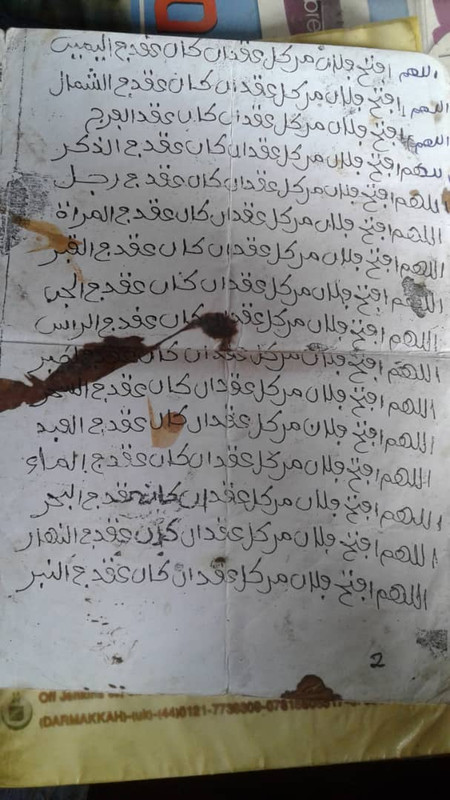 اللهم افتح فلان من كل عقد ان كان عقد في اليمين
اللهم افتح فلان من كل عقد ان كان عقد في الشمال
اللهم افتح فلان من كل عقد ان كان عقد الفرج
اللهم افتح فلان من كل عقد ان كان عقد في الذكر
اللهم افتح فلان من كل عقد ان كان عقد في رجل
اللهم افتح فلان من كل عقد ان كان عقد في المراة
اللهم افتح فلان من كل عقد ان كان عقد في القبر
اللهم افتح فلان من كل عقد ان كان عقد في
اللهم افتح فلان من كل عقد ان كان عقد في الراس
اللهم افتح فلان من كل عقد ان كان عقد
اللهم افتح فلان من كل عقد ان كان عقد في
اللهم افتح فلان من كل عقد ان كان عقد في العبد
اللهم افتح فلان من كل عقد ان كان عقد في الماء
اللهم افتح فلان من كل عقد ان كان عقد في البحر
اللهم افتح فلان من كل عقد ان كان عقد في النهار
اللهم افتح فلان من كل عقد ان كان عقد في النبر
2
Off
(DARMAKKAH)-(uk)-(44)0121-